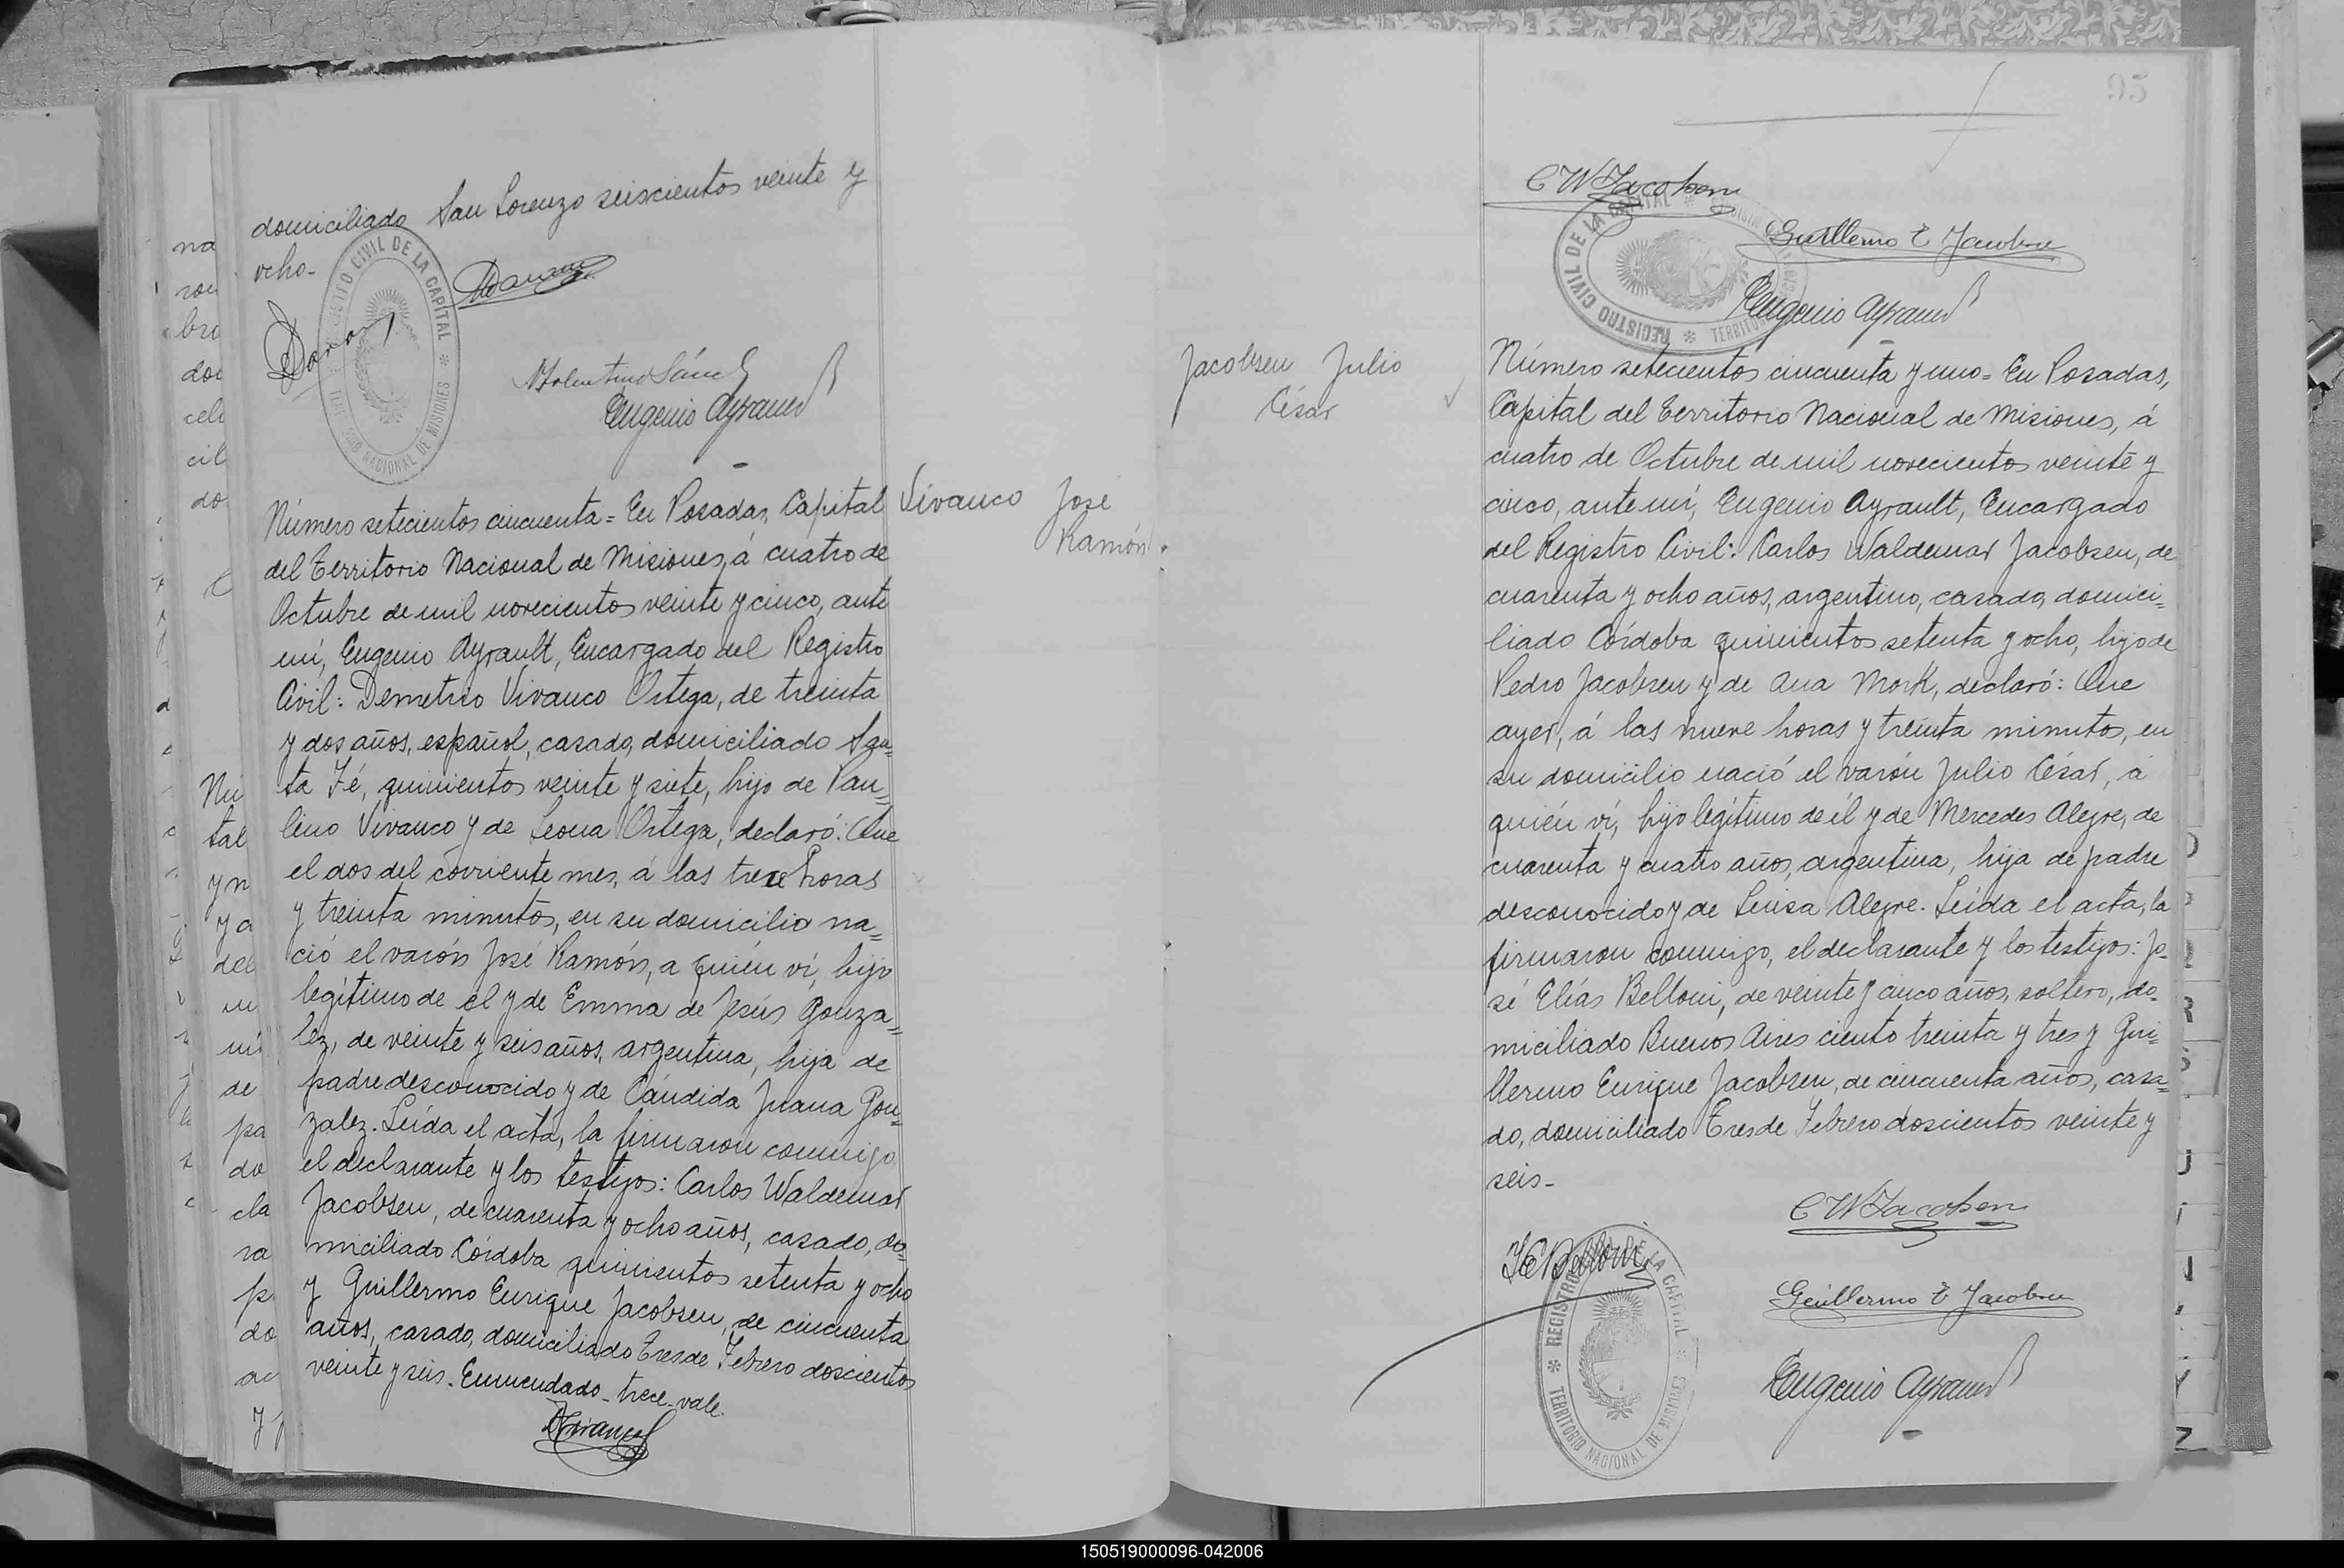 domiciliado San Lorenzo seiscientos veinte y
ocho-
REGISTRO CIVIL DE LA CAPITAL * TERRITORIO NACIONAL DE MISIONES
Eugenio Ayrault
Vivanco José
Ramón.
Número setecientos cincuenta = En Posadas, Capital
del Territorio Nacional de Misiones, á cuatro de
Octubre de mil novecientos veinte y cinco, ante
mí, Eugenio Ayrault, Encargado del Registro
Civil: Demetrio Vivanco Ortega, de treinta
y dos años, español, casado, domiciliado San=
ta Fé, quinientos veinte y siete, hijo de Pau=
lino Vivanco y de Leona Ortega, declaró: Que
el dos del corriente mes, á las trece horas
y treinta minutos, en su domicilio na=
ció el varón José Ramón, a quién ví, hijo
legítimo de el y de Emma de Jesús Gonza=
lez, de veinte y seis años, argentina, hija de
padre desconocido y de Cándida Juana Gon=
zalez. Leída el acta, la firmaron conmigo
el declarante y los testigos: Carlos Waldemar
Jacobsen, de cuarenta y ocho años, casado, do=
miciliado Córdoba quinientos setenta y ocho
y Guillermo Enrique Jacobsen, de cincuenta
años, casado, domiciliado Tres de Febrero doscientos
veinte y seis. Enmendado-trece-vale.
DVivanco
na
bro
do
cil
do.
Nú
tal
y n
y a
del
mi
de
pa
do
cla
ra
p
do
95
CWJacobsen
Guillermo E Jacobsen
REGISTRO CIVIL DE LA CAPITAL * TERRITORIO NACIONAL DE MISIONES
Eugenio Ayrault
Jacobsen Julio
César
Número setecientos cincuenta y uno = En Posadas,
Capital del Territorio Nacional de Misiones, á
cuatro de Octubre de mil novecientos veinte y
cinco, ante mí, Eugenio Ayrault, Encargado
del Registro Civil: Carlos Waldemar Jacobsen, de
cuarenta y ocho años, argentino, casado, domici=
liado Córdoba quinientos setenta y ocho, hijo de
Pedro Jacobsen y de Ana Mork, declaró: Que
ayer, á las nueve horas y treinta minutos, en
su domicilio nació el varón Julio César, á
quién ví, hijo legítimo de él y de Mercedes Alegre, de
cuarenta y cuatro años, argentina, hija de padre
desconocido y de Luisa Alegre. Leída el acta, la
firmaron conmigo, el declarante y los testigos: Jo-
sé Elías Belloni, de veinte y cinco años, soltero, do-
miciliado Buenos Aires ciento treinta y tres y Gui=
llermo Enrique Jacobsen, de cincuenta años, casa=
do, domiciliado Tres de Febrero doscientos veinte y
seis-
CWJacobsen
JEBelloni
Guillermo E Jacobsen
REGISTRO CIVIL DE LA CAPITAL * TERRITORIO NACIONAL DE MISIONES
Eugenio Ayrault
150519000096-042006